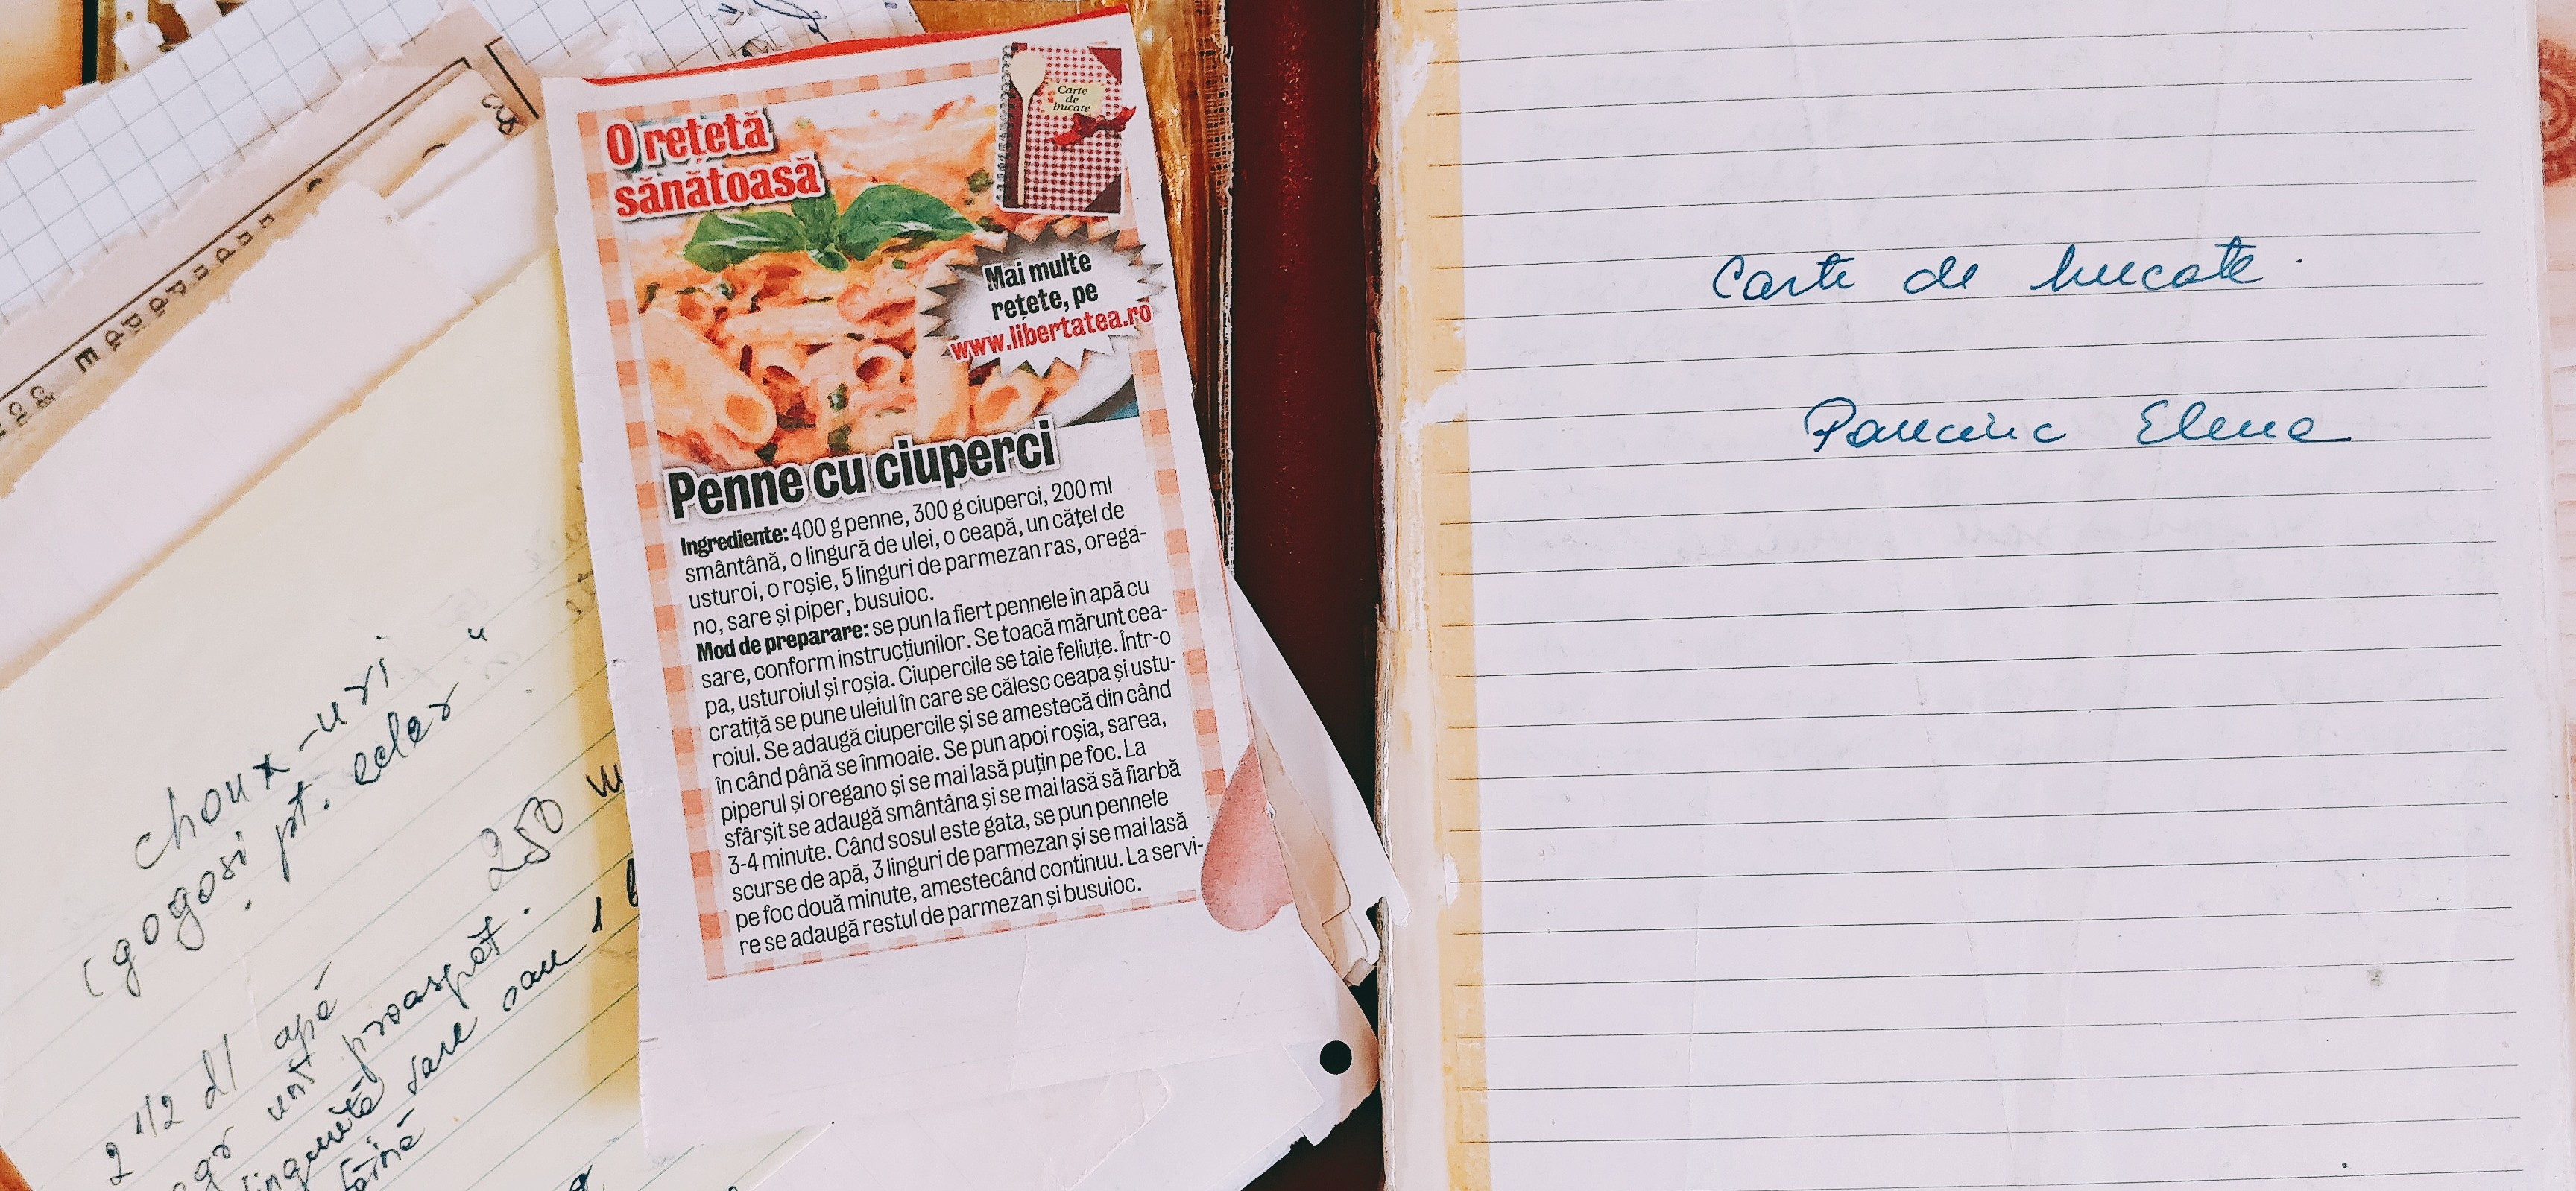 choux-uri
(gogosi pt. ecler"
250
2 1/2 dl apă
gr unt proaspăt.
linguriță sare sau 1
făină
O rețetă
sănătoasă
Carte
de
bucate
Mai multe
rețete, pe
www.libertatea.ro
Penne cu ciuperci
Ingrediente: 400 g penne, 300 g ciuperci, 200 ml
smântână, o lingură de ulei, o ceapă, un cățel de
usturoi, o roșie, 5 linguri de parmezan ras, orega-
no, sare și piper, busuioc.
Mod de preparare: se pun la fiert pennele în apă cu
sare, conform instrucțiunilor. Se toacă mărunt cea-
pa, usturoiul și roșia. Ciupercile se taie feliuțe. Într-o
cratiță se pune uleiul în care se călesc ceapa și ustu-
roiul. Se adaugă ciupercile și se amestecă din când
în când până se înmoaie. Se pun apoi roșia, sarea,
piperul și oregano și se mai lasă puțin pe foc. La
sfârșit se adaugă smântâna și se mai lasă să fiarbă
3-4 minute. Când sosul este gata, se pun pennele
scurse de apă, 3 linguri de parmezan și se mai lasă
pe foc două minute, amestecând continuu. La servi-
re se adaugă restul de parmezan și busuioc.
Carte de bucate.
Elena